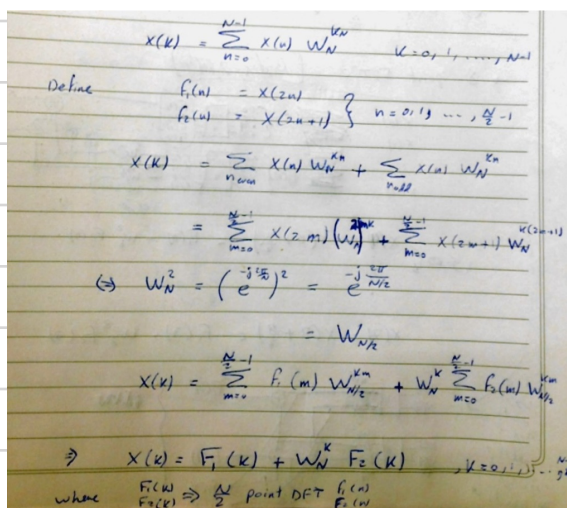 X(k) = Σ_{n=0}^{N-1} x(n) W_N^{kn}    k=0, 1, ....., N-1
Define f₁(n) = x(2n)
f₂(n) = x(2n+1) } n=0,1, ...., N/2 -1
X(k) = Σ_{n even} x(n) W_N^{kn} + Σ_{n odd} x(n) W_N^{kn}
= Σ_{m=0}^{N/2-1} x(2m) (W_N)^{2mk} + Σ_{m=0}^{N/2-1} x(2m+1) W_N^{k(2m+1)}
(⇒) W_N^2 = (e^{-j 2π/N})^2 = e^{-j 2π/(N/2)}
= W_{N/2}
X(k) = Σ_{m=0}^{N/2-1} f₁(m) W_{N/2}^{km} + W_N^k Σ_{m=0}^{N/2-1} f₂(m) W_{N/2}^{km}
⇒ X(k) = F₁(k) + W_N^k F₂(k)    , k=0, 1, ...
where F₁(k) F₂(k) ⇒ N/2 point DFT f₁(n) f₂(n)